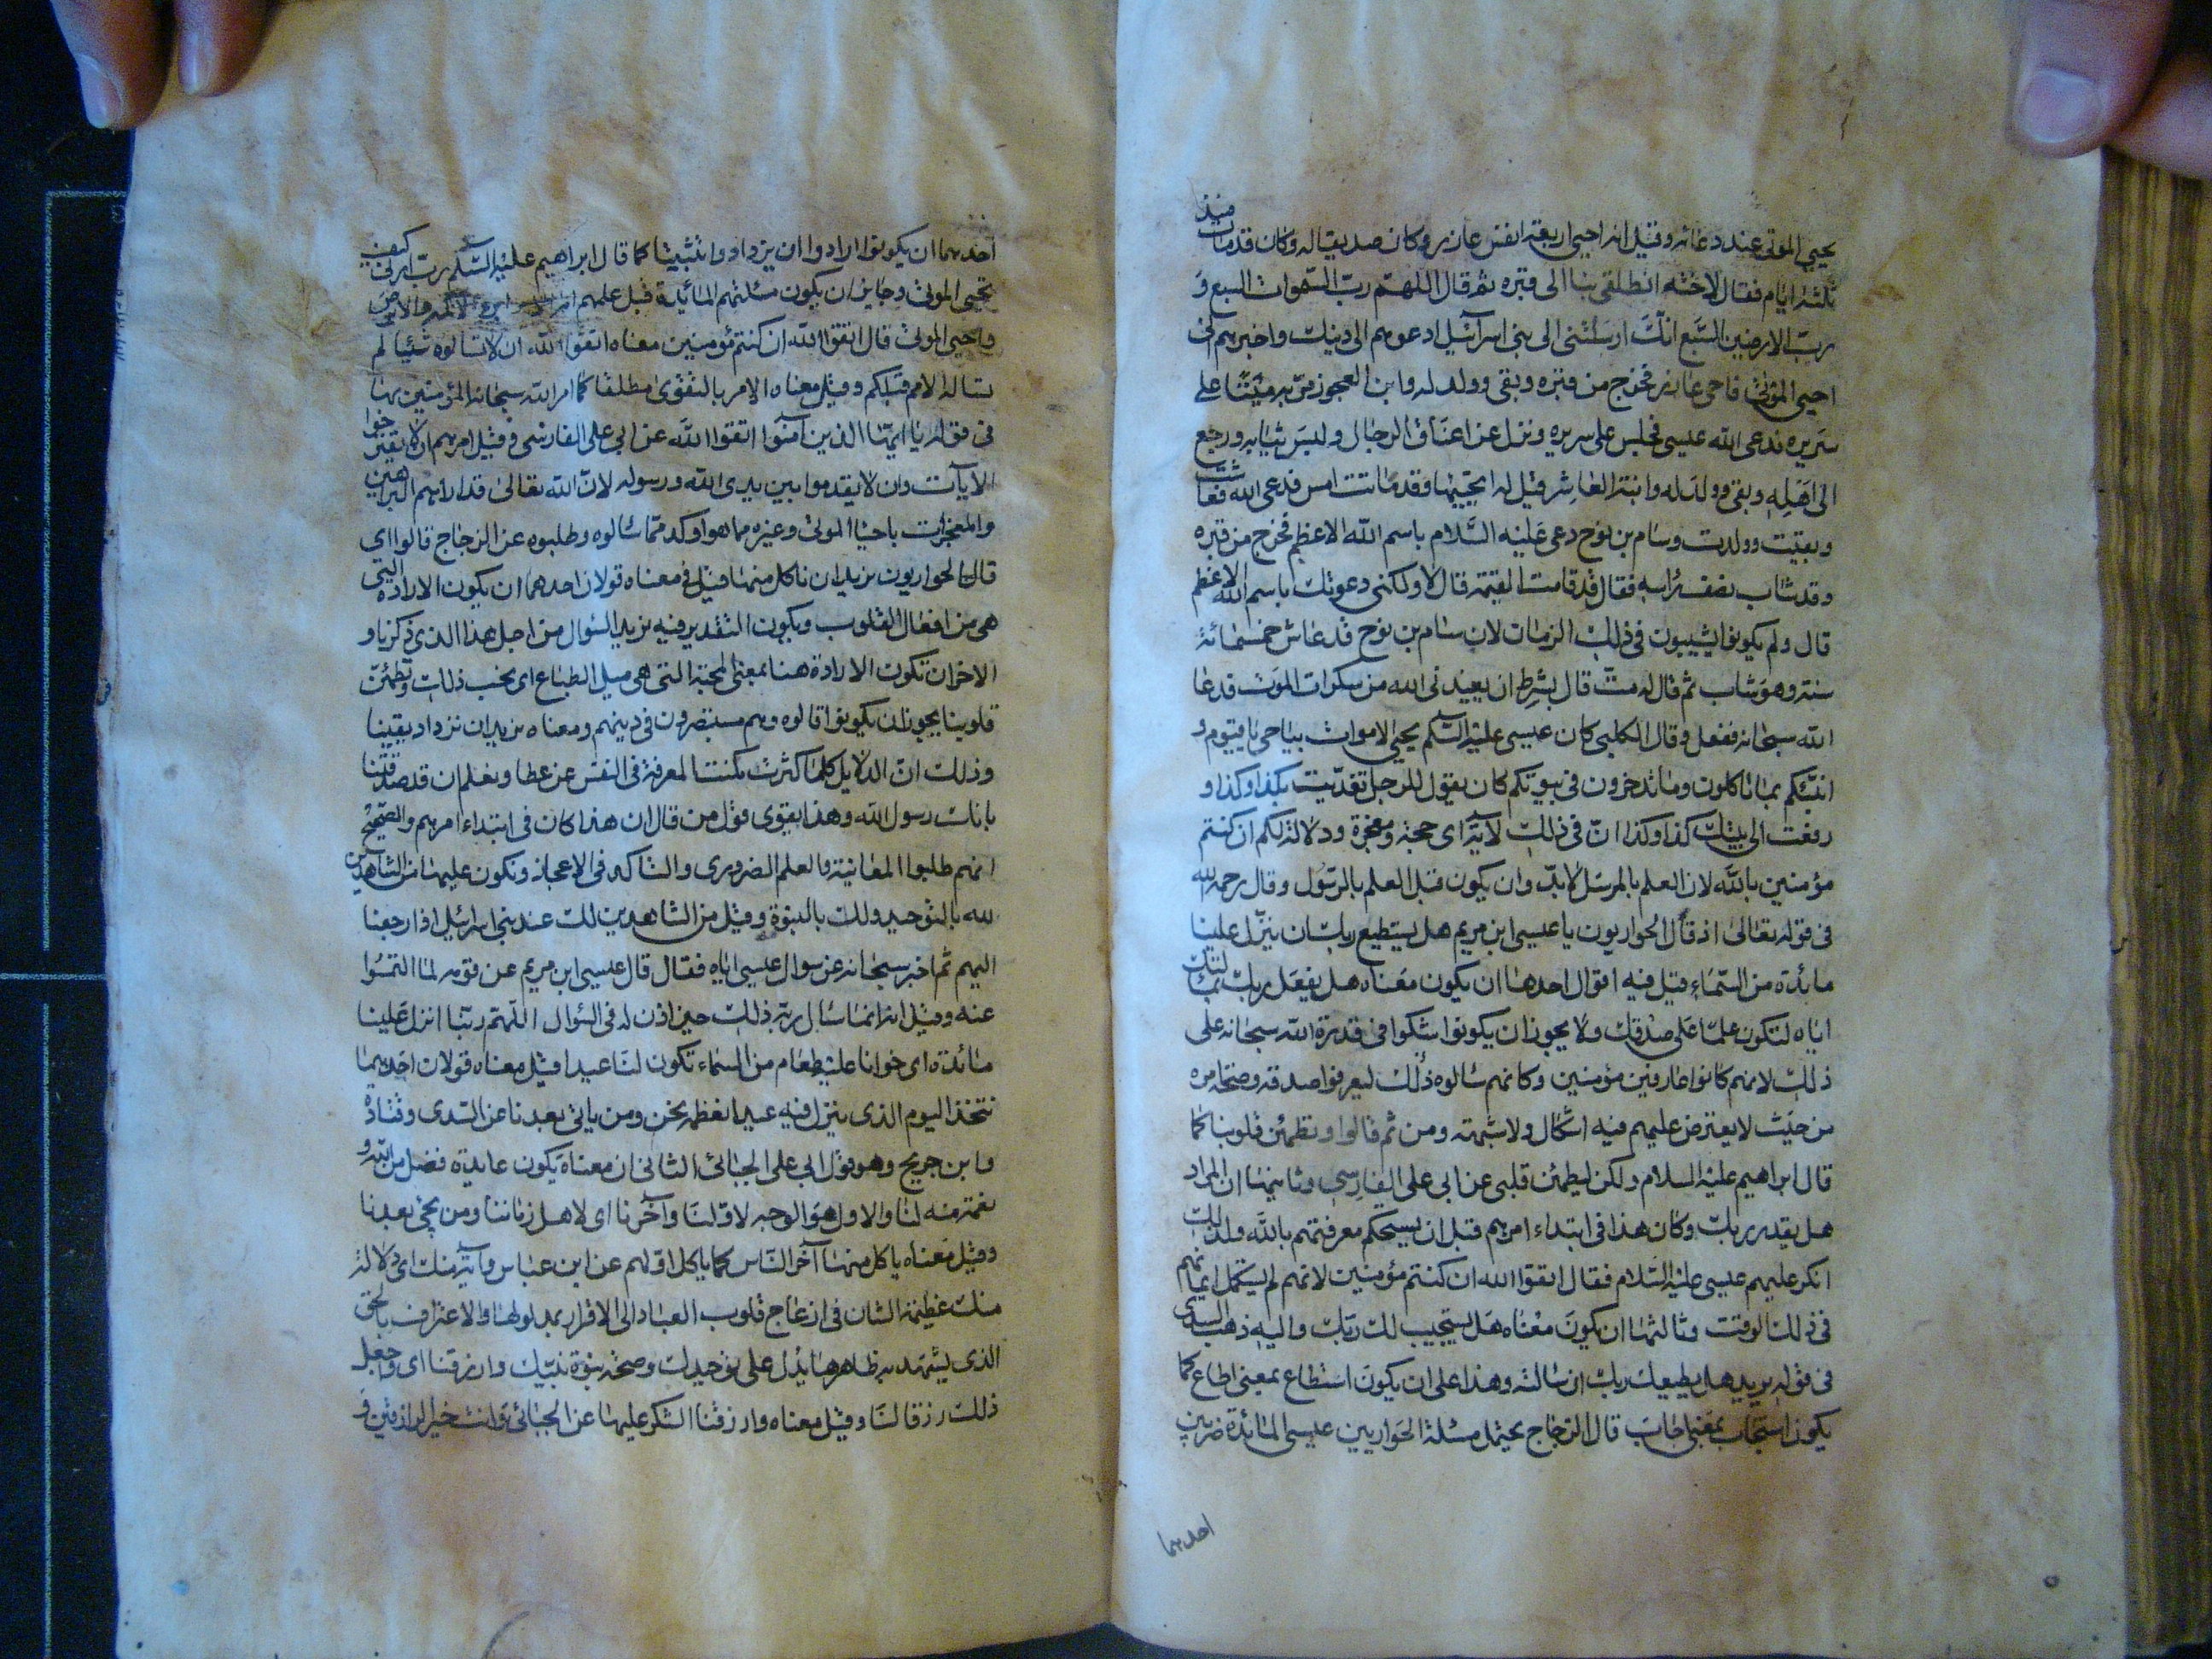 يحيي الموتى عند دعائه وقيل انه احيى اربعة انفس عازر وكان صديقا له وكان قد مات منذ
ثلثة ايام فقال لاخته انطلقي بنا الى قبره ثم قال اللهم رب السموات السبع و
رب الارضين السبع انك ارسلتنى الى بنى اسرآئيل ادعوهم الى دينك واخبرهم انى
احيى الموتى فاحى عازر فخرج من قبره وبقى وولد له وابن العجوز مر به ميتا على
سريره فدعى الله عيسى فجلس على سريره ونزل عن اعناق الرجال ولبس ثيابه ورجع
الى اهله وبقى وولد له وابنة العاشر قيل له اتحييها وقد ماتت امس فدعى الله فعاشت
وبقيت وولدت وسام بن نوح دعى عليه السلام باسم الله الاعظم فخرج من قبره
وقد شاب نصف راسه فقال قد قامت القيمة قال لا ولكنى دعوتك باسم الله الاعظم
قال ولم يكونوا يشيبون فى ذلك الزمان لان سام بن نوح قد عاش خمسمائة
سنة وهو شاب ثم قال له مت قال بشرط ان يعيذنى الله من سكرات الموت فدعا
الله سبحانه ففعل وقال الكلبى كان عيسى عليه السلم يحيى الاموات بياحى يا قيوم و
انبئكم بما تاكلون وما تدخرون فى بيوتكم كان يقول للرجل تغديت بكذا وكذا و
رفعت الى بيتك كذا وكذا ان فى ذلك لآية اى حجة ومعجزة ودلالة لكم ان كنتم
مؤمنين بالله لان العلم بالمرسل لا بد وان يكون قبل العلم بالرسول وقال رحمه الله
فى قوله تعالى اذ قال الحواريون يا عيسى ابن مريم هل يستطيع ربك ان ينزل علينا
مائدة من السماء قيل فيه اقوال احدها ان يكون معناه هل يفعل ربك بمسالتك
اياه لتكون علما على صدقك ولا يجوز ان يكونوا شكوا فى قدرة الله سبحانه على
ذلك لانهم كانوا عارفين مؤمنين وكانهم سالوه ذلك ليعرفوا صدقه وصحة امره
من حيث لا يعترض عليهم فيه اشكال ولا شبهة ومن ثم قالوا وتطمئن قلوبنا كما
قال ابراهيم عليه السلام ولكن ليطمئن قلبى عن ابى على الفارسى وثانيها ان المراد
هل يقدر ربك وكان هذا فى ابتداء امرهم قبل ان يستحكم معرفتهم بالله ولذلك
انكر عليهم عيسى عليه السلام فقال اتقوا الله ان كنتم مؤمنين لانهم لم يستكمل ايمانهم
فى ذلك الوقت وثالثها ان يكون معناه هل يستجيب لك ربك واليه ذهب السدى
فى قوله يريد هل يطيعك ربك ان سالته وهذا على ان يكون استطاع بمعنى اطاع كما
يكون استجاب بمعنى اجاب قال الزجاج يحتمل مسئلة الحواريين عيسى المائدة ضربين
احدهما
احدهما ان يكونوا ارادوا ان يزدادوا تثبيتا كما قال ابراهيم عليه السلم رب ارنى كيف
تحيى الموتى وجايز ان يكون مسئلتهم المائدة قبل علمهم انه ابرء الاكمه والابرص
واحيى الموتى قال اتقوا الله ان كنتم مؤمنين معناه اتقوا الله ان لا تسالوه شيئا لم
تساله الامم قبلكم وقيل معناه الامر بالتقوى مطلقا كما امر الله سبحانه المؤمنين بها
فى قوله يا ايها الذين آمنوا اتقوا الله عن ابى على الفارسى وقيل امرهم ان لا يقترحوا
الآيات وان لا يقدموا بين يدى الله ورسوله لان الله تعالى قد اراهم البراهين
والمعجزات باحياء الموتى وغيره مما هو اوكد مما سالوه وطلبوه عن الزجاج قالوا اى
قال الحواريون نريد ان ناكل منها قيل فى معناه قولان احدهما ان يكون الارادة التى
هى من افعال القلوب ويكون التقدير فيه نريد السؤال من اجل هذا الذى ذكرنا و
الاخر ان تكون الارادة هنا بمعنى المحبة التى هى ميل الطباع اى نحب ذلك وتطمئن
قلوبنا يجوز ان يكونوا قالوه وهم مستبصرون فى دينهم ومعناه نريد ان نزداد يقينا
وذلك ان الدلايل كلما كثرت مكنت المعرفة فى النفس عن عطا ونعلم ان قد صدقتنا
بانك رسول الله وهذا يقوى قول من قال ان هذا كان فى ابتداء امرهم والصحيح
انهم طلبوا المعاينة والعلم الضرورى والتاكد فى الاعجاز ونكون عليها من الشاهدين
لله بالتوحيد ولك بالنبوة وقيل من الشاهدين لك عند بنى اسرائيل اذا رجعنا
اليهم ثم اخبر سبحانه عن سوال عيسى اياه فقال قال عيسى ابن مريم عن قومه لما التمسوا
عنه وقيل انه انما سال ربه ذلك حين اذن له فى السؤال اللهم ربنا انزل علينا
مائدة اى خوانا عليه طعام من السماء تكون لنا عيدا قيل معناه قولان احدهما
نتخذ اليوم الذى ينزل فيه عيدا نعظمه نحن ومن ياتى بعدنا عن السدى وقتادة
وابن جريج وهو قول ابى على الجبائى الثانى ان معناه يكون عايدة فضل من الله و
نعمة منه لنا والاول هو الوجه لاولنا وآخرنا اى لاهل زماننا ومن يجئ بعدنا
وقيل معناه ياكل منها آخر الناس كما ياكل اولهم عن ابن عباس وآية منك اى دلالة
منك عظيمة الشان فى ازعاج قلوب العباد الى الاقرار بمدلولها والاعتراف بالحق
الذى يشهد به ظاهرها يدل على توحيدك وصحة نبوة نبيك وارزقنا اى واجعل
ذلك رزقا لنا وقيل معناه وارزقنا الشكر عليها عن الجبائى وانت خير الرازقين و